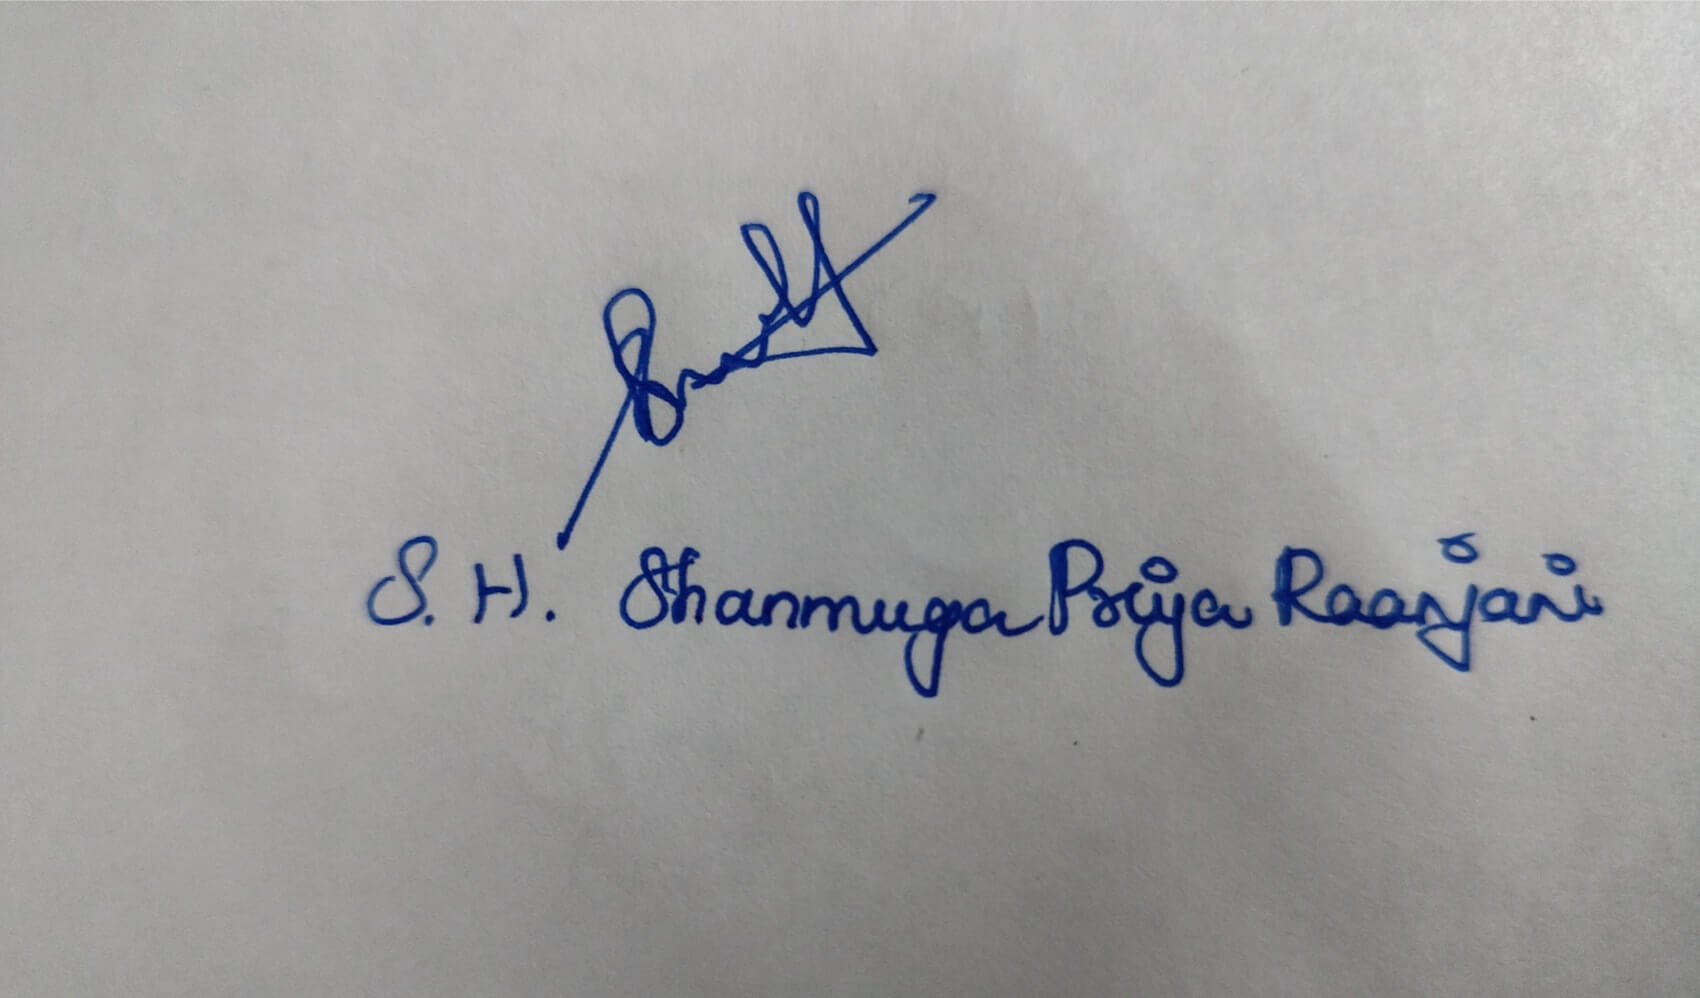 S. H. Shanmuga Priya Raanjani